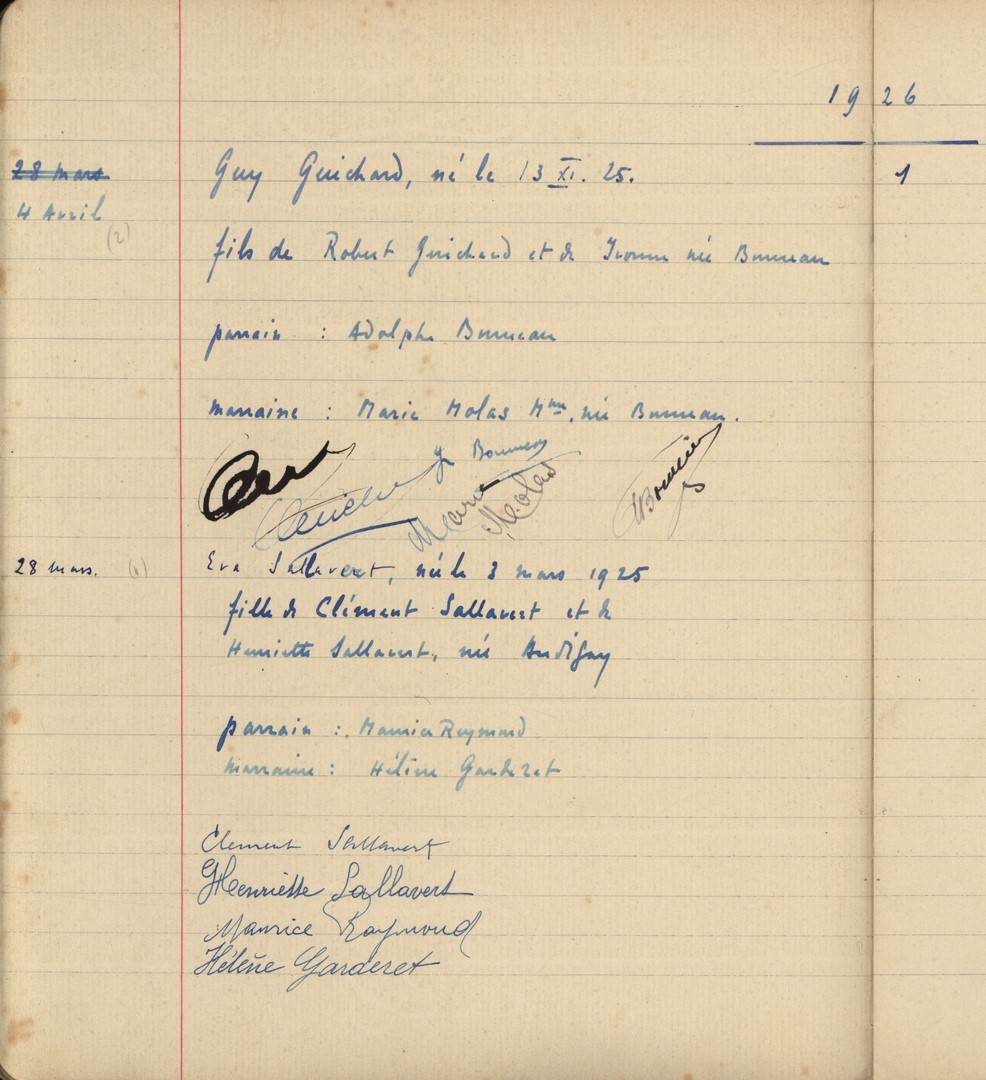 1926
28 mars
Guy Guichard, né le 13 XI. 25.
1
4 Avril
(2)
fils de Robert Guichard et de Yvonne née Bonneau
parrain : Adolphe Bonneau
marraine : Marie Molas Mme, née Bonneau.
Y Bonneau
Marie Molas
Bonneau
28 mars. (1)
Eva Sallavert, née le 3 mars 1925
fille de Clément Sallavert et de
Henriette Sallavert, née Audigay
parrain : Maurice Raymond
marraine : Hélène Garderet
Clement Sallavert
Henriette Sallavert
Maurice Raymond
Hélène Garderet